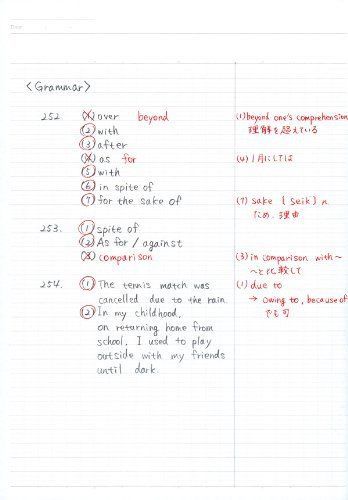 <Grammar>
252 (1) over beyond (1) beyond one's comprehension
(2) with 理解を超えている
(3) after
(4) as for (4) 1月にしては
(5) with
(6) in spite of
(7) for the sake of (7) sake [seik] n
ため, 理由
253. (1) spite of
(2) As for / against
(3) comparison (3) in comparison with ~
~と比較して
254. (1) The tennis match was (1) due to
cancelled due to the rain. → owing to, because of
(2) In my childhood, でも可
on returning home from
school, I used to play
outside with my friends
until dark.